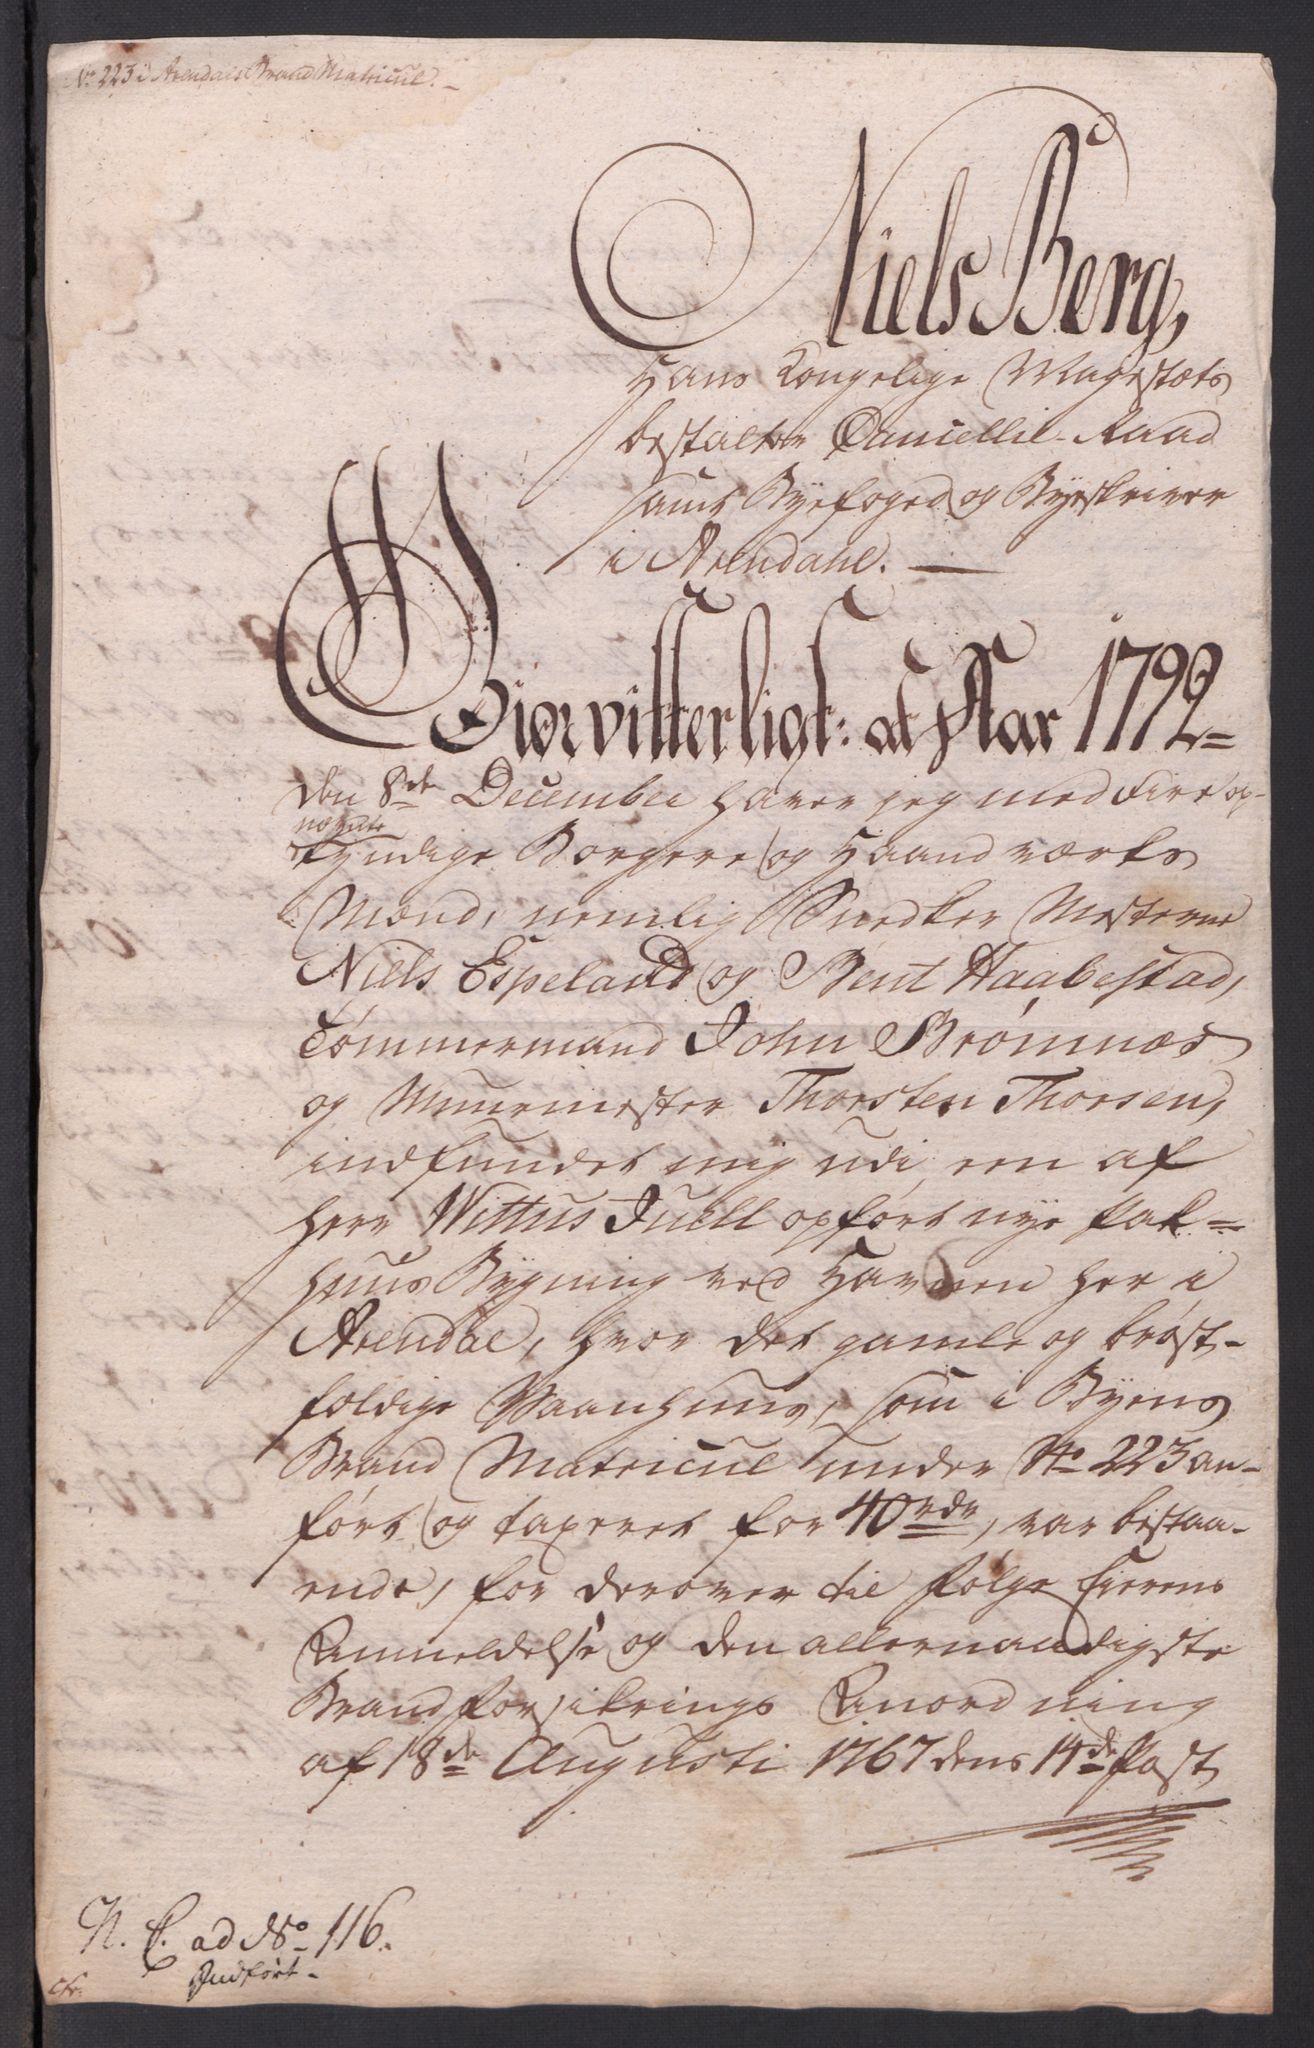 No 223 i Arendals Brand Matricul.
Niels Berg,
Hans Kongelige Majestæts
bestalter Cancellie-Raad
samt Byefoged og Byeskriver
i Arendahl.
Giør vitterligt: at Aar 1792
den 8de December haver jeg med Fire op-
nævnte
kyndige Borgere og Haandværks
Mænd, nemlig Snedker Mesterne
Niels Espeland og Bent Haabestad,
Tømmermand John Brømnæs
og Muurmester Thorsten Thorsen,
indfundet mig udi een af
Herr Wittus Juell opført nye Pak-
huus Bygning ved Havnen her i
Arendal, hvor det gamle og brøst-
foldige Vaanhuus, som i Byens
Brand Matricul under No 223 an-
ført og taxeret for 40 rdr, var bestaa-
ende, for derover til følge Eierens
Anmeldelse og den allernaadigste
Brandforsikrings Anordning
af 18de Augusti 1767 dens 14de Post
N. C. ad No 116.
Indført
cfr.